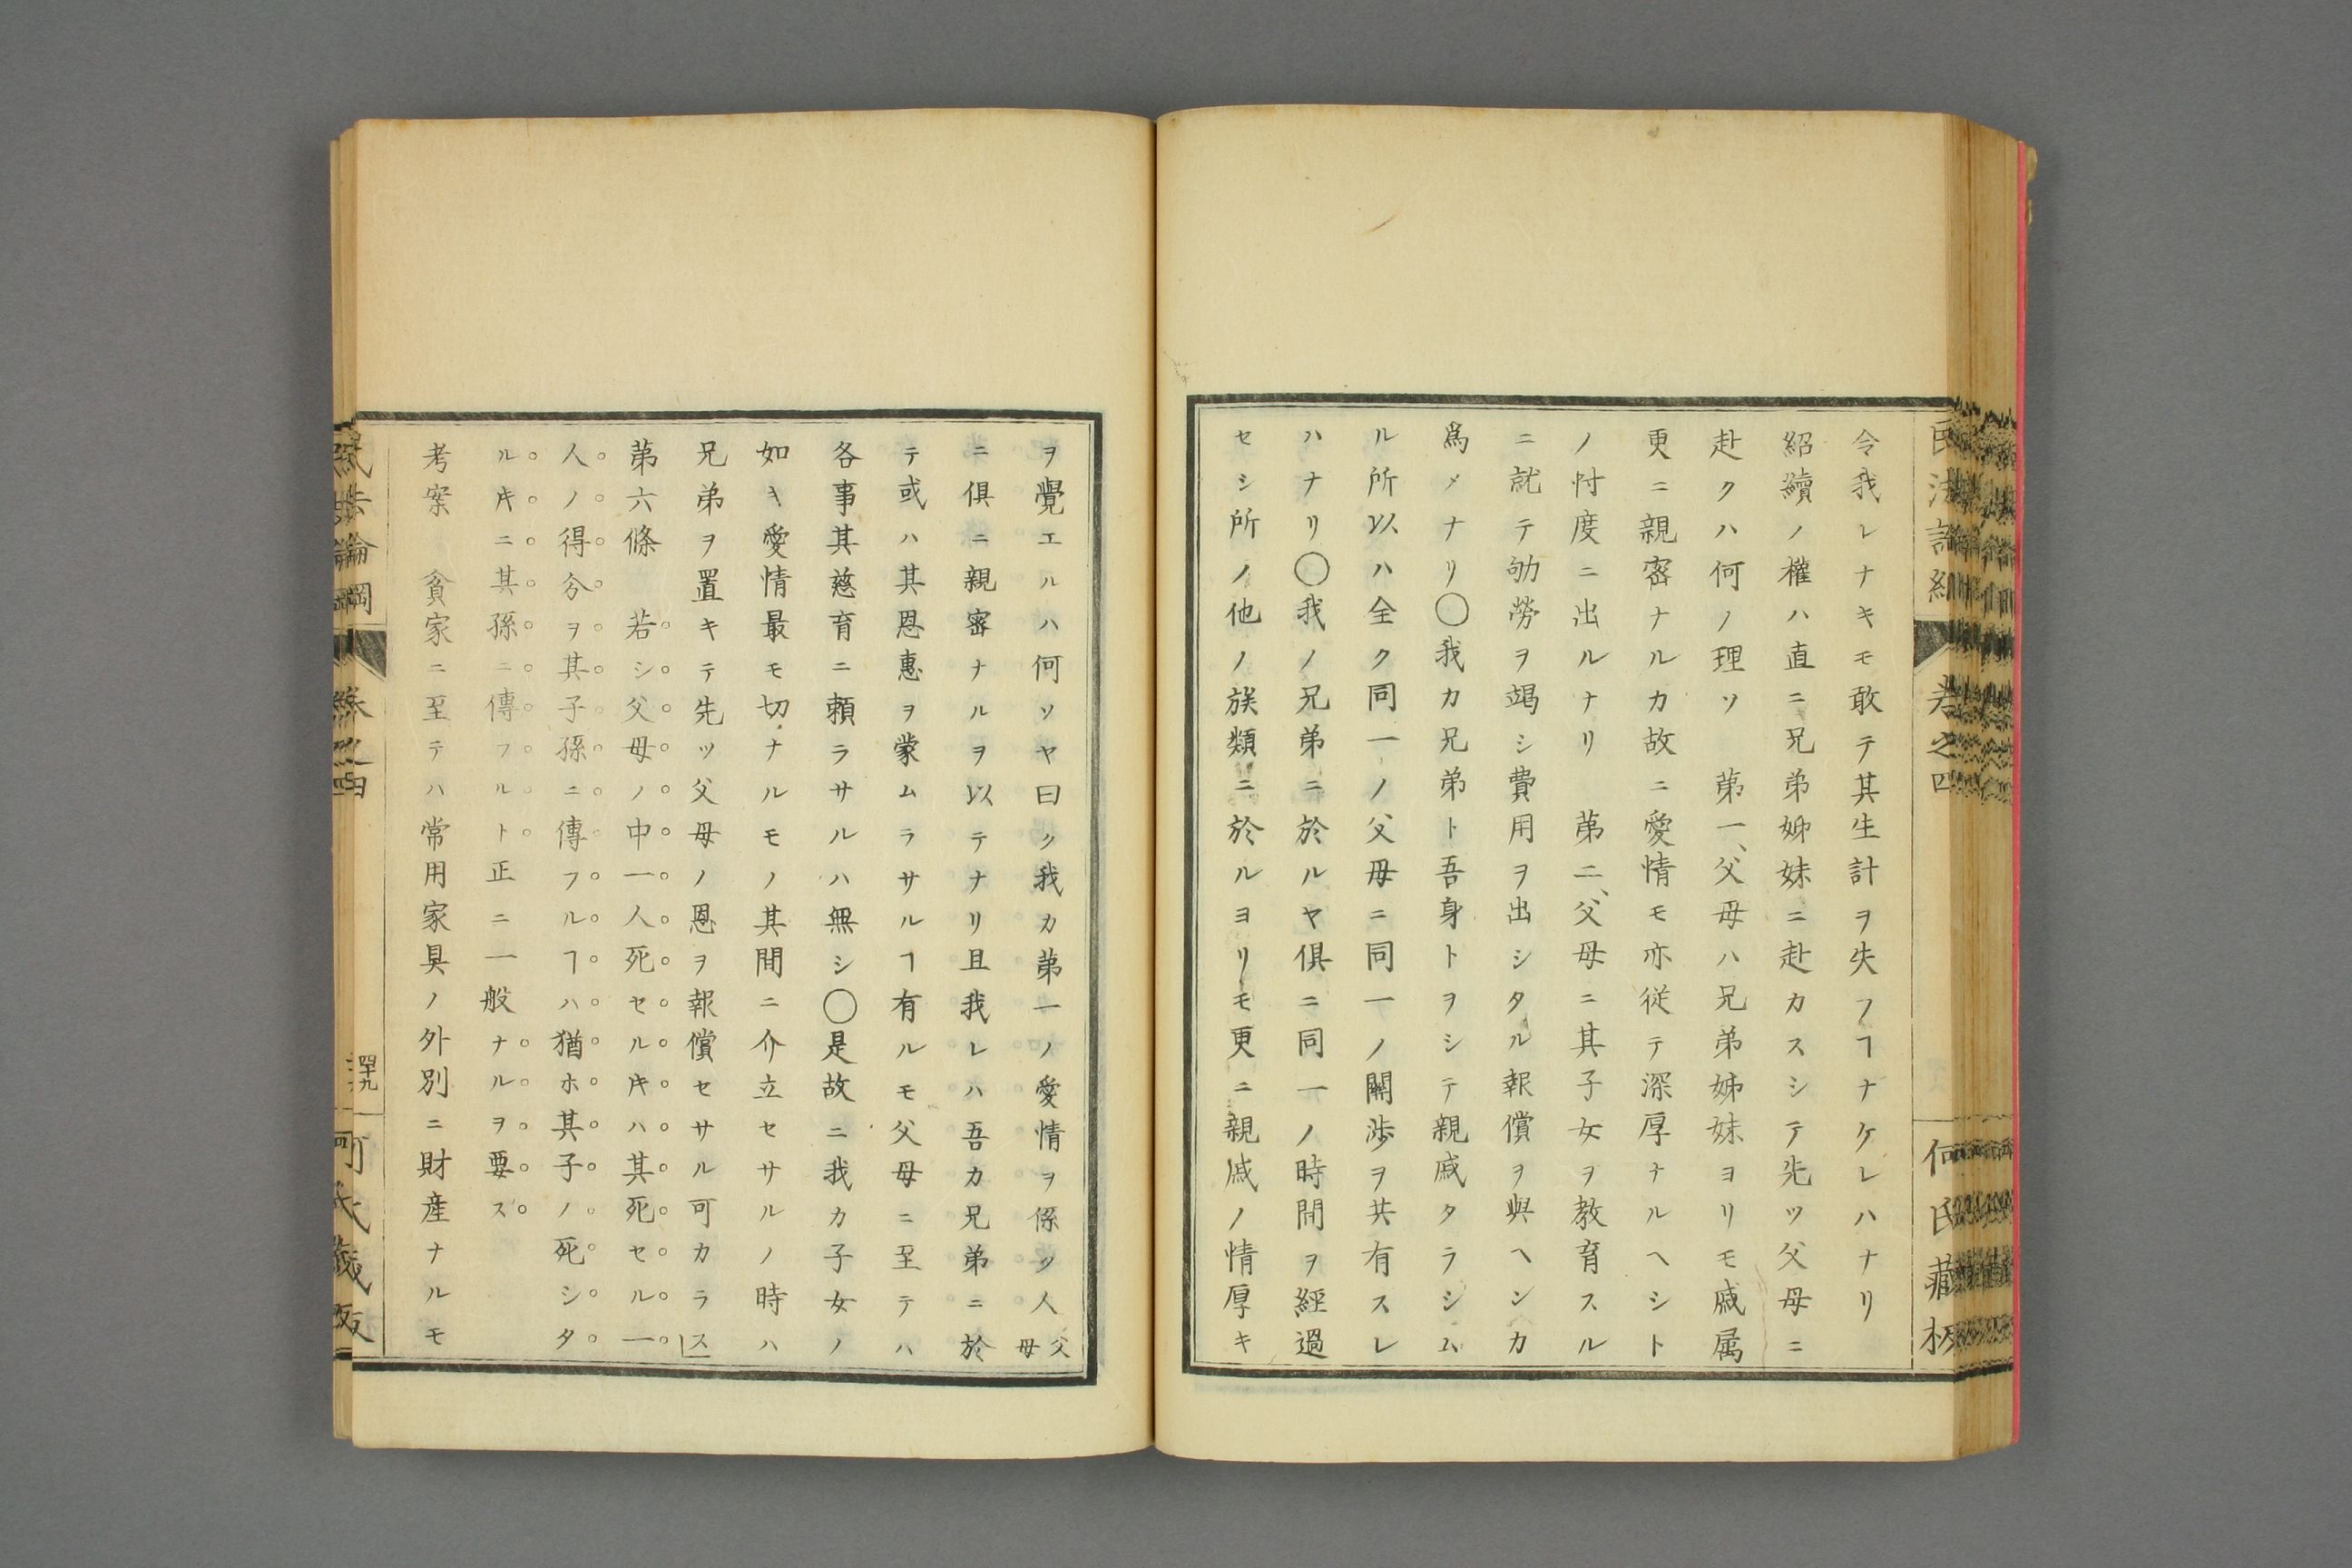 令我レナキモ敢テ其生計ヲ失フヿナケレハナリ
紹續ノ權ハ直ニ兄弟姊妹ニ赴カスシテ先ツ父母ニ
赴クハ何ノ理ソ　第一、父母ハ兄弟姊妹ヨリモ戚属
更ニ親密ナルカ故ニ愛情モ亦従テ深厚ナルヘシト
ノ忖度ニ出ルナリ　第二、父母ニ其子女ヲ教育スル
ニ就テ劬勞ヲ竭シ費用ヲ出シタル報償ヲ與ヘンカ
爲メナリ〇我カ兄弟ト吾身トヲシテ親戚タラシム
ル所以ハ全ク同一ノ父母ニ同一ノ關渉ヲ共有スレ
ハナリ〇我ノ兄弟ニ於ルヤ俱ニ同一ノ時間ヲ經過
セシ所ノ他ノ族類ニ於ルヨリモ更ニ親戚ノ情厚キ
ヲ覺エルハ何ソヤ曰ク我カ弟一ノ愛情ヲ係ク人父母
ニ俱ニ親密ナルヲ以テナリ且我レハ吾カ兄弟ニ於
テ或ハ其恩惠ヲ蒙ムラサルヿ有ルモ父母ニ至テハ
各事其慈育ニ頼ラサルハ無シ〇是故ニ我カ子女ノ
如キ愛情最モ切ナルモノ其間ニ介立セサルノ時ハ
兄弟ヲ置キテ先ツ父母ノ恩ヲ報償セサル可カラス
第六條　若シ父母ノ中一人死セルキハ其死セル一
人ノ得分ヲ其子孫ニ傳フルヿハ猶ホ其子ノ死シタ
ルキニ其孫ニ傳フルト正ニ一般ナルヲ要ス
考案　貧家ニ至テハ常用家具ノ外別ニ財産ナルモ
卷之四
四十九
何氏藏板